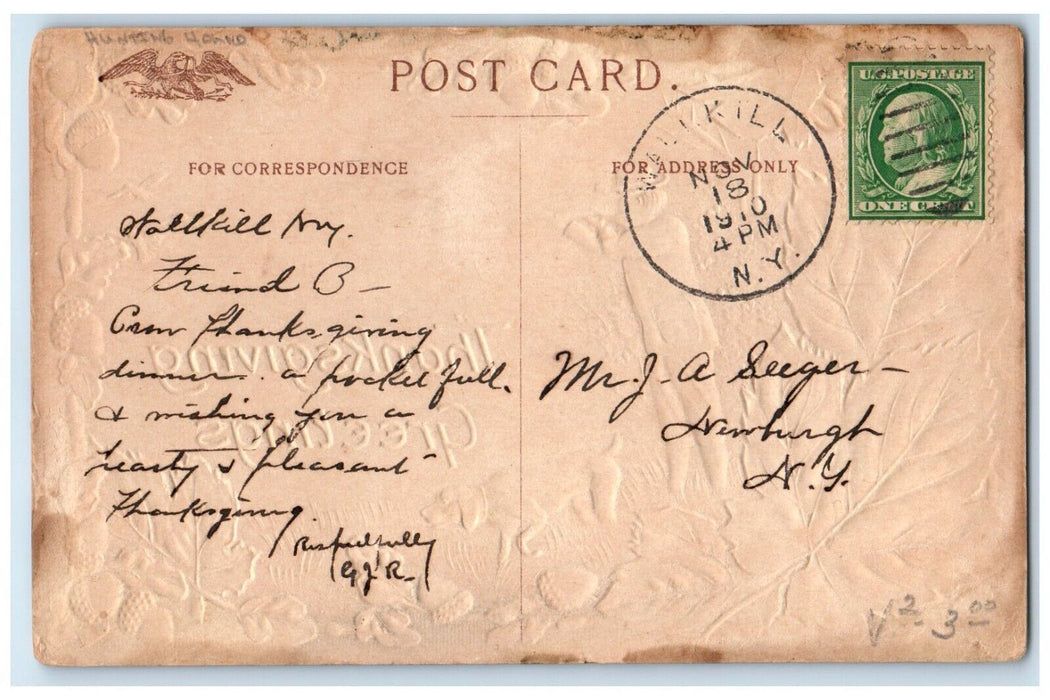 HUNTING HOUND
POST CARD.
U.S. POSTAGE
ONE CENT
WALLKILL
NOV
18
1910
4 PM
N.Y.
FOR CORRESPONDENCE
FOR ADDRESS ONLY
Wallkill Ny.
Friend B -
Thanksgiving
dinner. a pocket full.
& wishing you a
hearty & pleasant
Thanksgiving.
Respectfully
G J R -
Mr. J. A Seeger -
Newburgh
N.Y.
Thanksgiving
Greetings
V 2 - 3 00